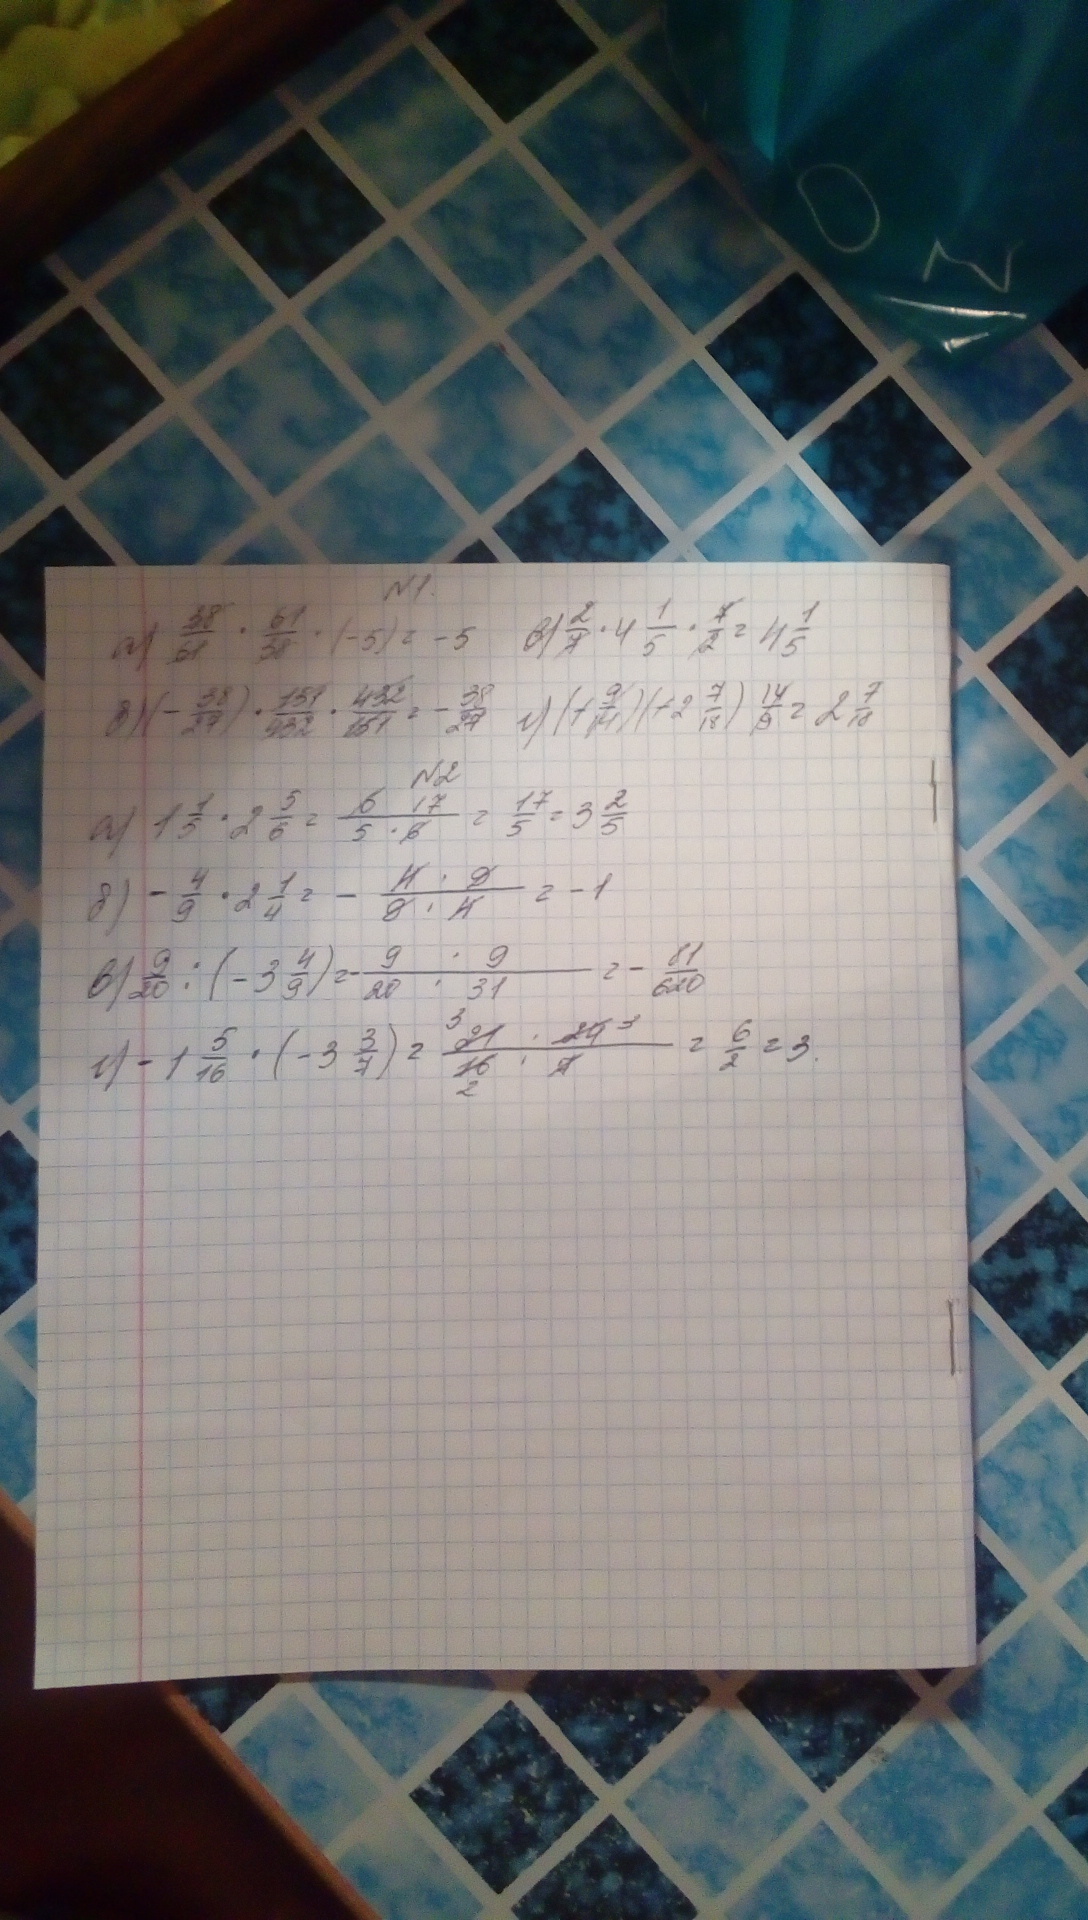 N1.
а) 38/61 · 61/38 · (-5) = -5 в) 2/7 · 4 1/5 · 7/2 = 4 1/5
б) (- 38/27) · 151/432 · 432/151 = - 38/27 г) (+ 9/14)(+2 7/18) 14/9 = 2 7/18
N2
а) 1 1/5 · 2 5/6 = 6 17/5 · 6 = 17/5 = 3 2/5
б) - 4/9 · 2 1/4 = - 4 · 9/9 · 4 = -1
в) 9/20 : (-3 4/9) = - 9 · 9/20 · 31 = - 81/620
г) - 1 5/16 · (-3 3/7) = 3 21 · 24 3/16 2 · 7 = 6/2 = 3.